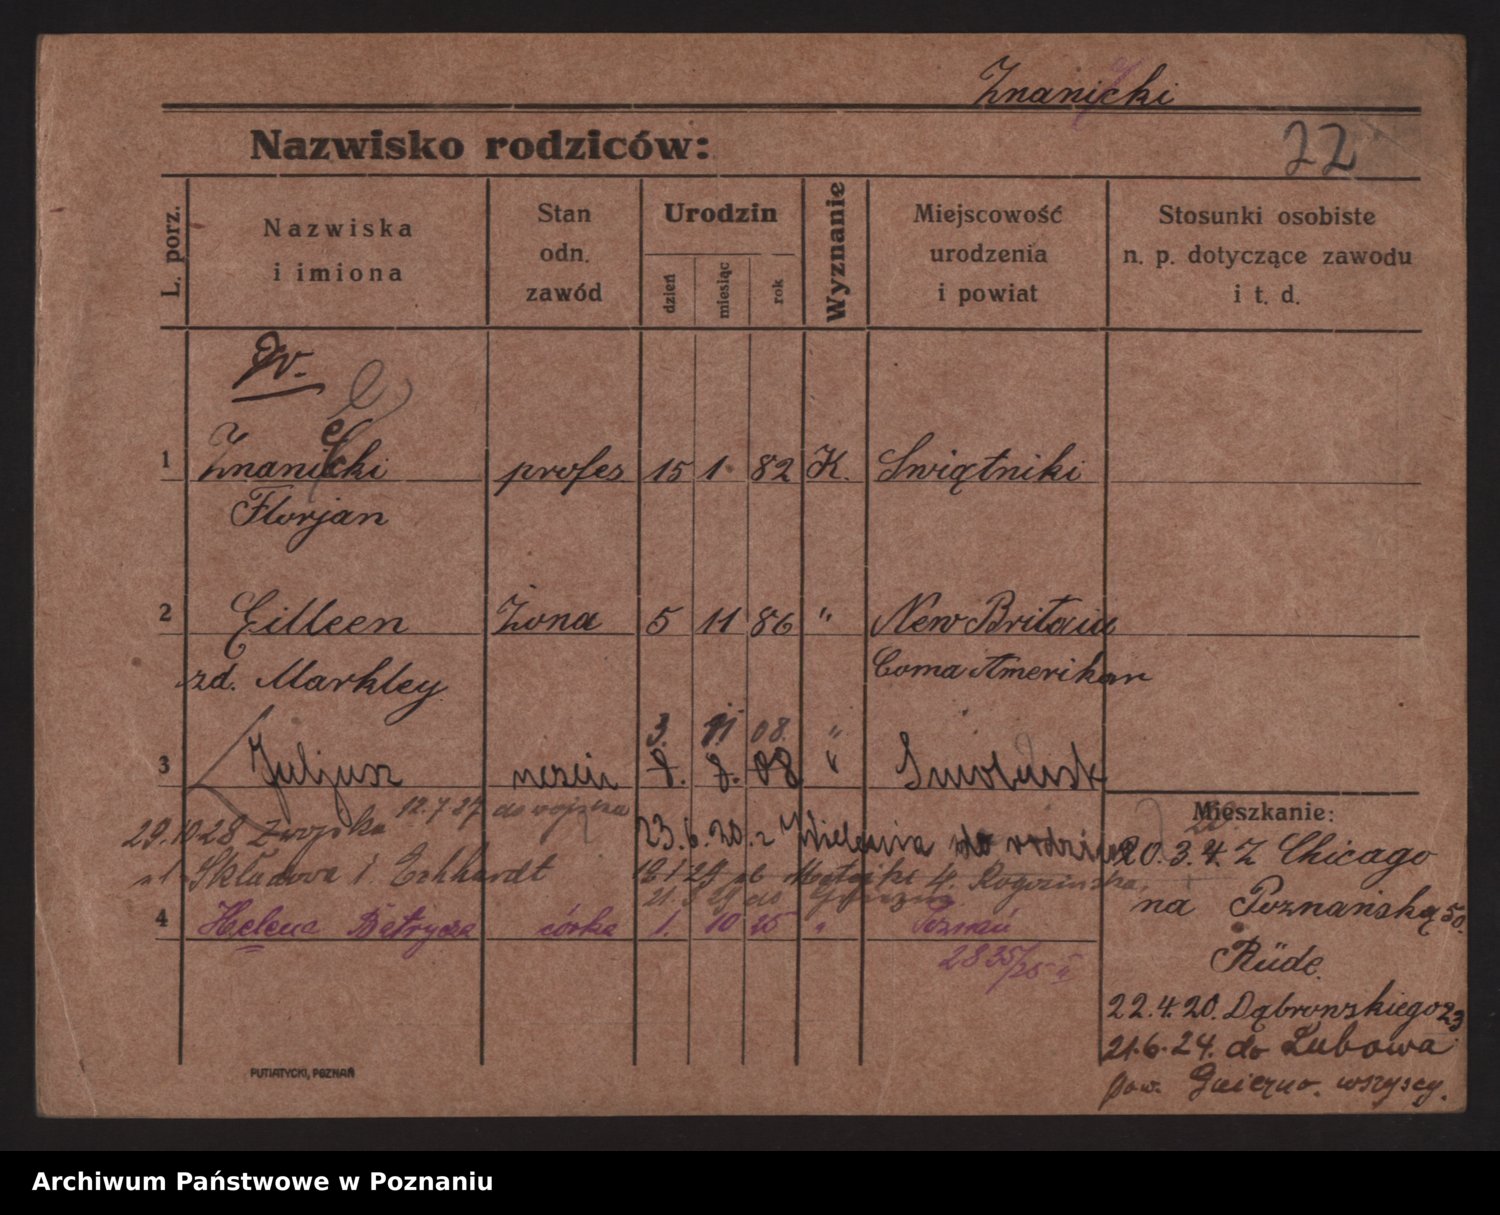 Znaniecki
Nazwisko rodziców:
22
L. porz.
Nazwiska
i imiona
Stan
odn.
zawód
Urodzin
dzień
miesiąc
rok
Wyznanie
Miejscowość
urodzenia
i powiat
Stosunki osobiste
n. p. dotyczące zawodu
i t. d.
W.
e
1 Znaniecki profes 15 1. 82 K. Swiątniki
Florjan
2 Eilleen Żona 5 11 86 " New Britain
zd. Markley Coma Amerika
3. 11 08. "
3 Juljusz uczeń 8. 8. 08 " Smoleńsk
Mieszkanie:
29.10 28 z wojska 12.7 27 do wojska 23.6.20. z Wielenia do rodziny
20.3.4. Z Chicago
Składowa 1. Eckhardt 4. Rogozińska
na Poznańską 50.
4 Helena Betrycza córka 1. 10 25 " Poznań
2835/25 II
Rüde.
22.4.20. Dąbrowskiego 23
21.6.24. do Łubowa
pow. Gniezno. wszyscy.
PUTIATYCKI, POZNAŃ
Archiwum Państwowe w Poznaniu